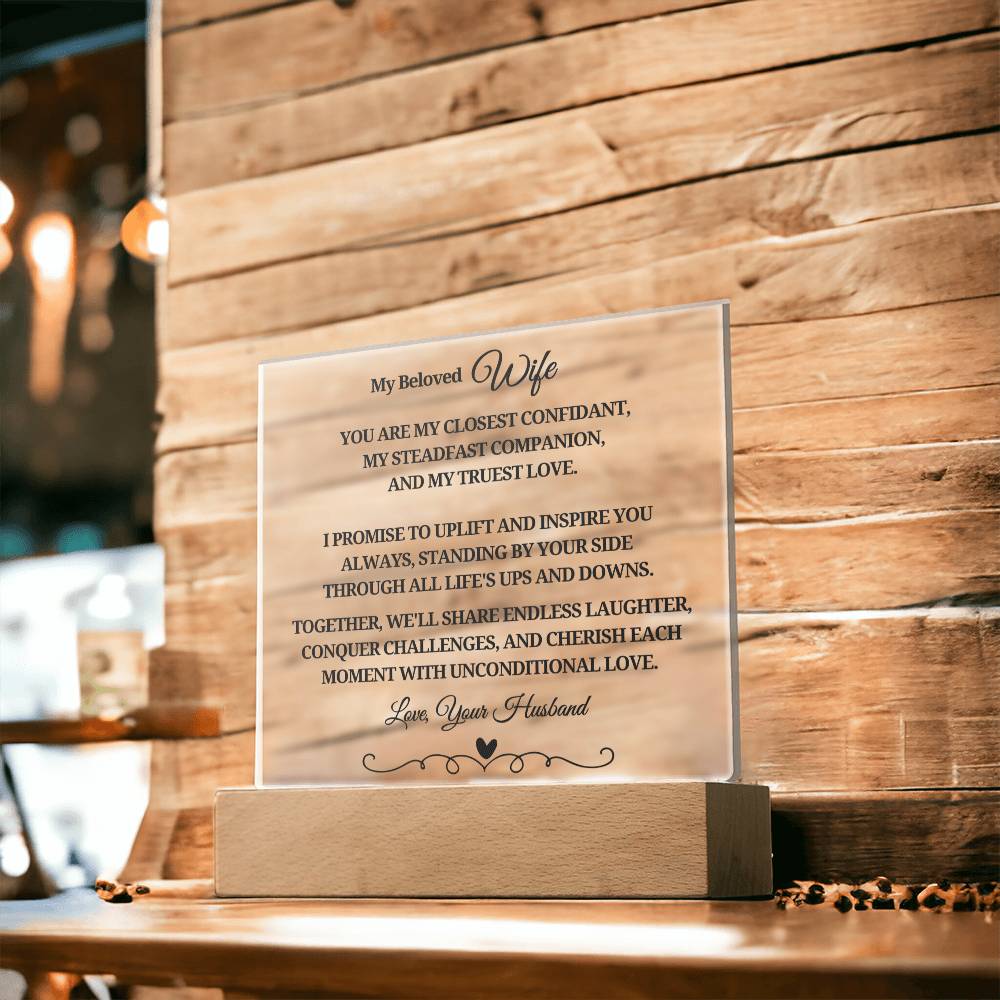 My Beloved Wife
YOU ARE MY CLOSEST CONFIDANT,
MY STEADFAST COMPANION,
AND MY TRUEST LOVE.
I PROMISE TO UPLIFT AND INSPIRE YOU
ALWAYS, STANDING BY YOUR SIDE
THROUGH ALL LIFE'S UPS AND DOWNS.
TOGETHER, WE'LL SHARE ENDLESS LAUGHTER,
CONQUER CHALLENGES, AND CHERISH EACH
MOMENT WITH UNCONDITIONAL LOVE.
Love, Your Husband